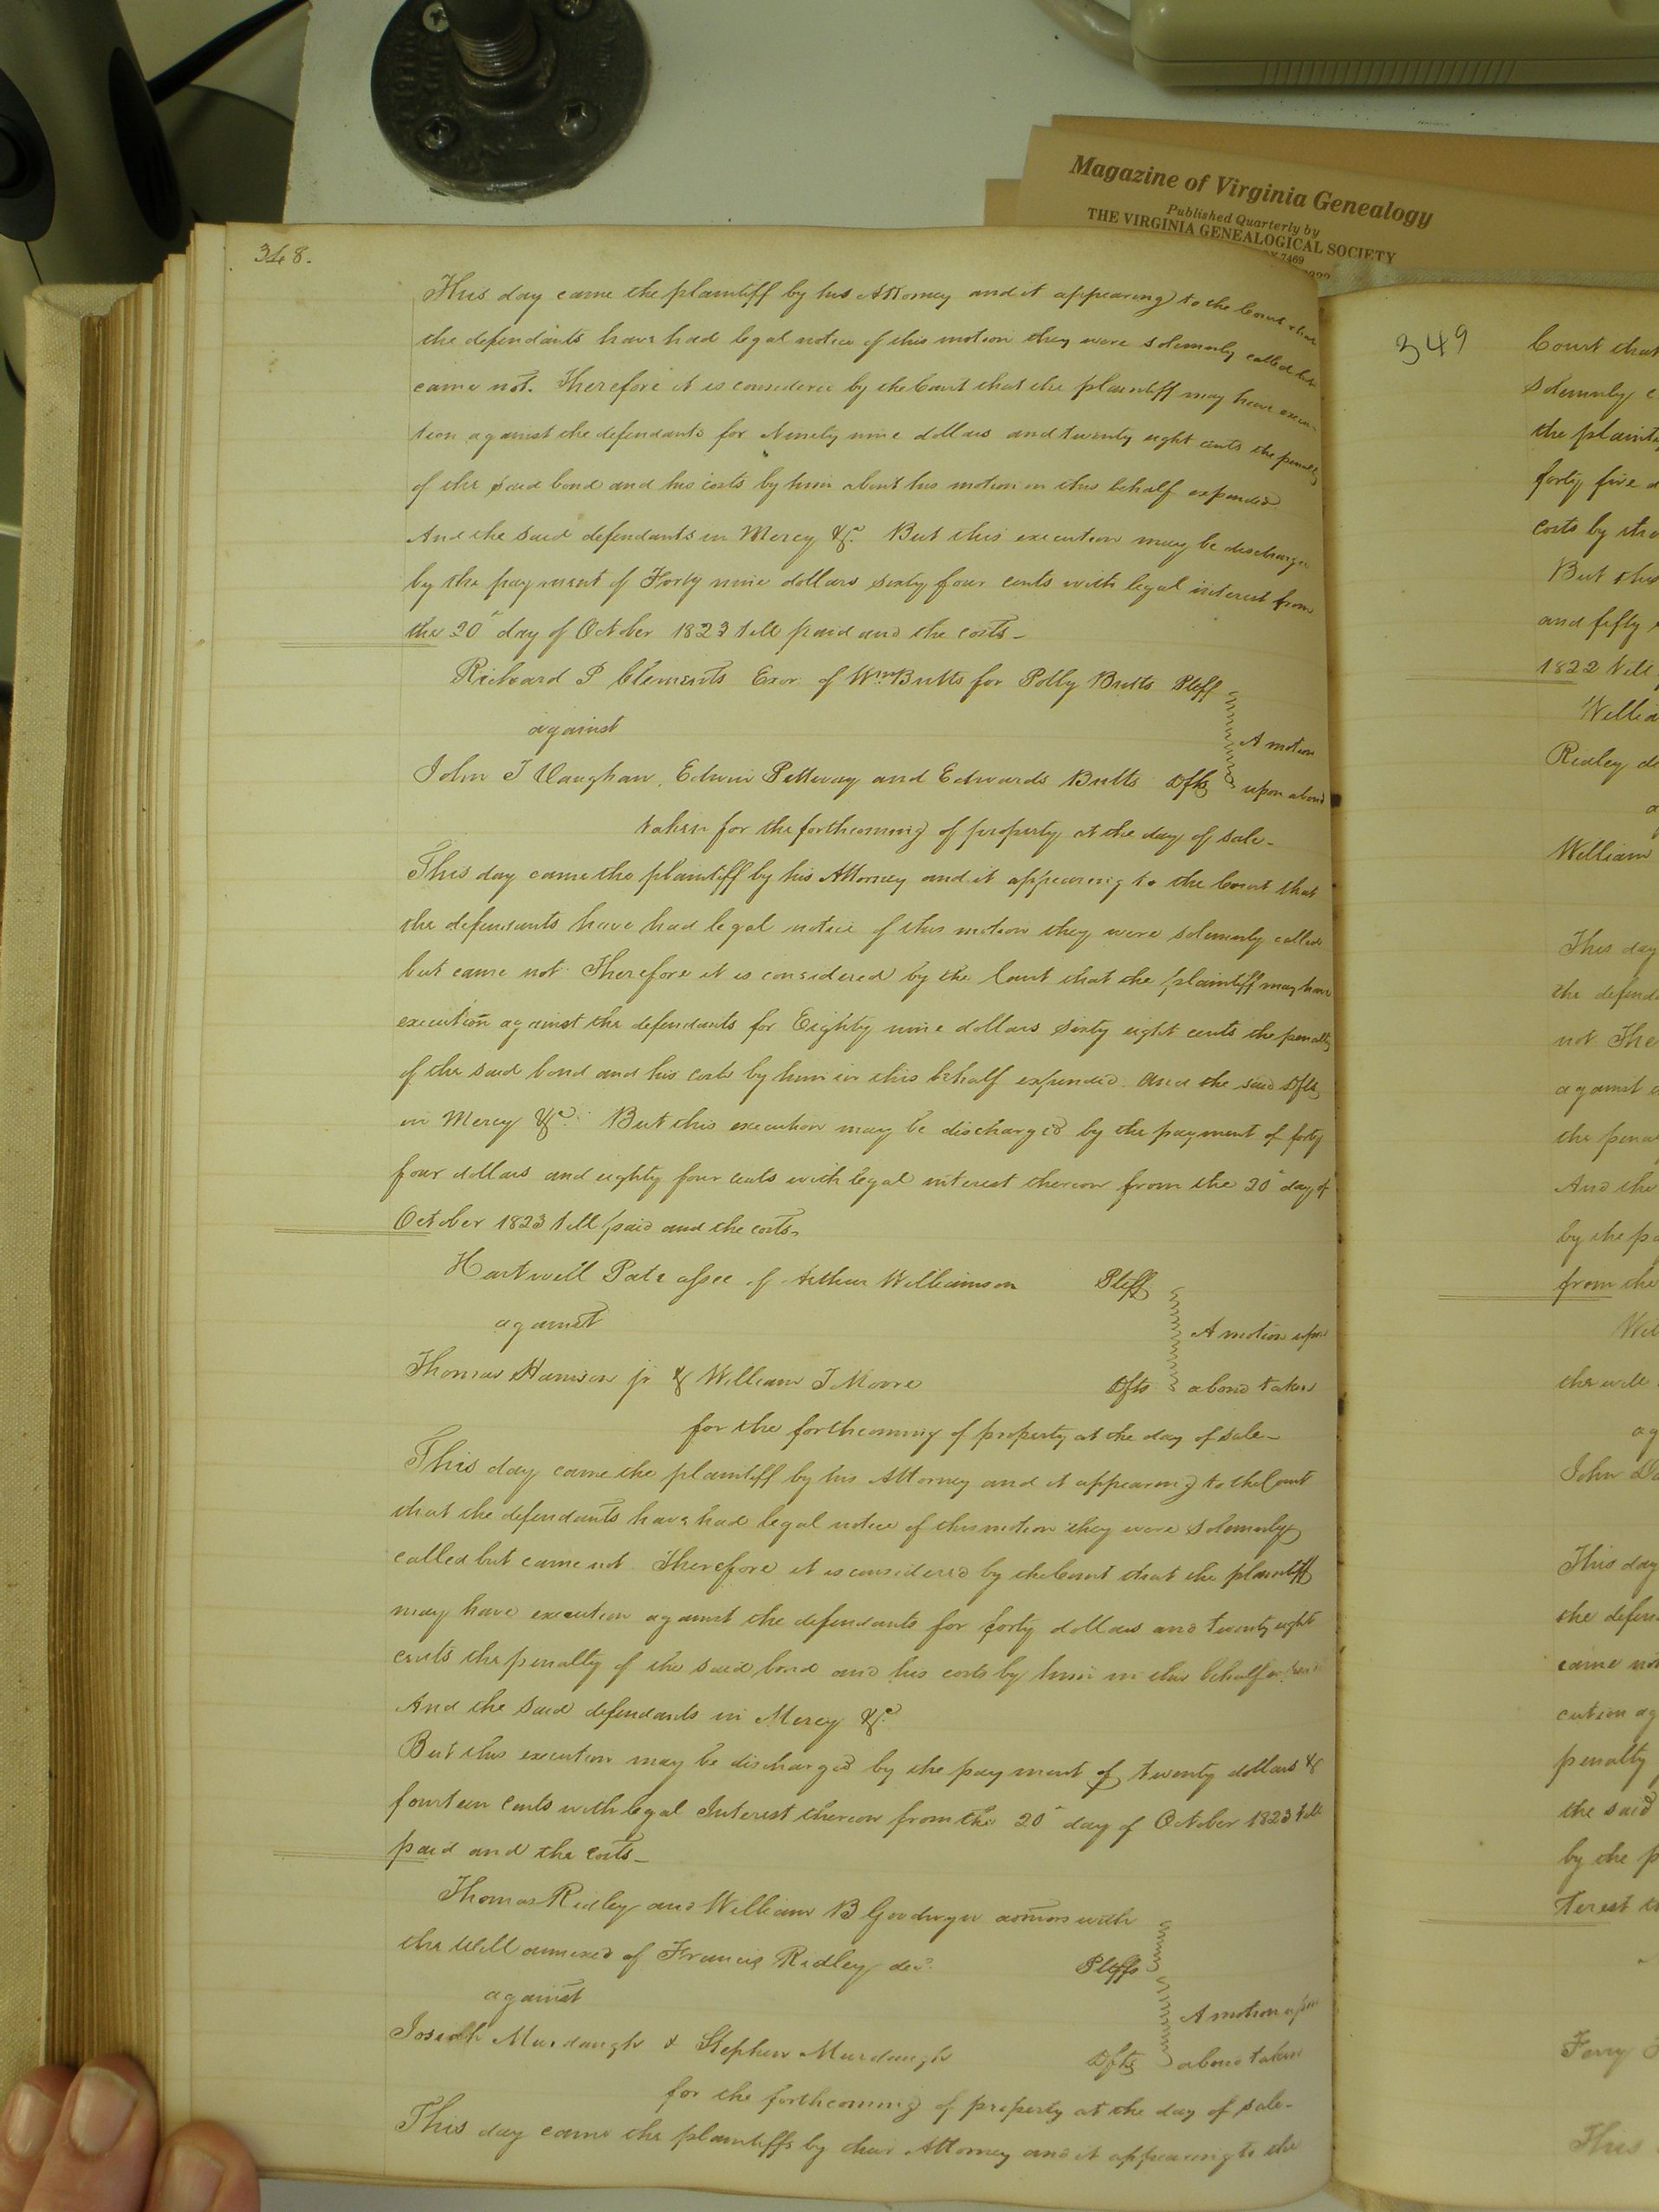 Magazine of Virginia Genealogy
Published Quarterly by
THE VIRGINIA GENEALOGICAL SOCIETY
7469
348.
This day came the plaintiff by his Attorney and it appearing to the Court that
the defendants have had legal notice of this motion they were solemnly called but
came not. Therefore it is considered by the Court that the plaintiff may have execu-
tion against the defendants for Ninety nine dollars and twenty eight cents the penalty
of the said bond and his costs by him about his motion in this behalf expended
And the said defendants in Mercy &c. But this execution may be discharged
by the payment of Forty nine dollars sixty four cents with legal interest from
the 20" day of October 1823 till paid and the costs_
Richard P Clements Exor of Wm Butts for Polly Butts Pltff
against
A motion
John T Vaughan, Edwin Pettway and Edwards Butts Dfts upon a bond
taken for the forthcoming of property at the day of sale_
This day came the plaintiff by his Attorney and it appearing to the Court that
the defendants have had legal notice of this motion they were solemnly called
but came not. Therefore it is considered by the Court that the plaintiff may have
execution against the defendants for Eighty nine dollars sixty eight cents the penalty
of the said bond and his costs by him in this behalf expended. And the said Dfts
in Mercy &c. But this execution may be discharged by the payment of forty
four dollars and eighty four cents with legal interest thereon from the 20" day of
October 1823 till paid and the costs.
Hartwell Pate assee of Arthur Williamson Pltff
against
A motion upon
Thomas Harrison jr & William T Moore Dfts a bond taken
for the forthcoming of property at the day of sale_
This day came the plaintiff by his Attorney and it appearing to the Court
that the defendants have had legal notice of this motion they were solemnly
called but came not. Therefore it is considered by the Court that the plaintiff
may have execution against the defendants for forty dollars and twenty eight
cents the penalty of the said bond and his costs by him in this behalf
And the said defendants in Mercy &c.
But this execution may be discharged by the payment of twenty dollars &
fourteen cents with legal Interest thereon from the 20" day of October 1823 till
paid and the costs_
Thomas Ridley and William B Goodwyn admors with
the Will annexed of Francis Ridley decd. Pltffs
against
A motion upon
Joseph Murdaugh & Stephen Murdaugh Dfts a bond taken
for the forthcoming of property at the day of sale_
This day came the plaintiffs by their Attorney and it appearing to the
349
Court that
solemnly
the
forty five
costs by
But this
and fifty
1822 till
Ridley
William
This day
the
not
against
the
And the
by the
from the
the will
John
This day
the
came not
penalty
the said
by the
Ferry
This